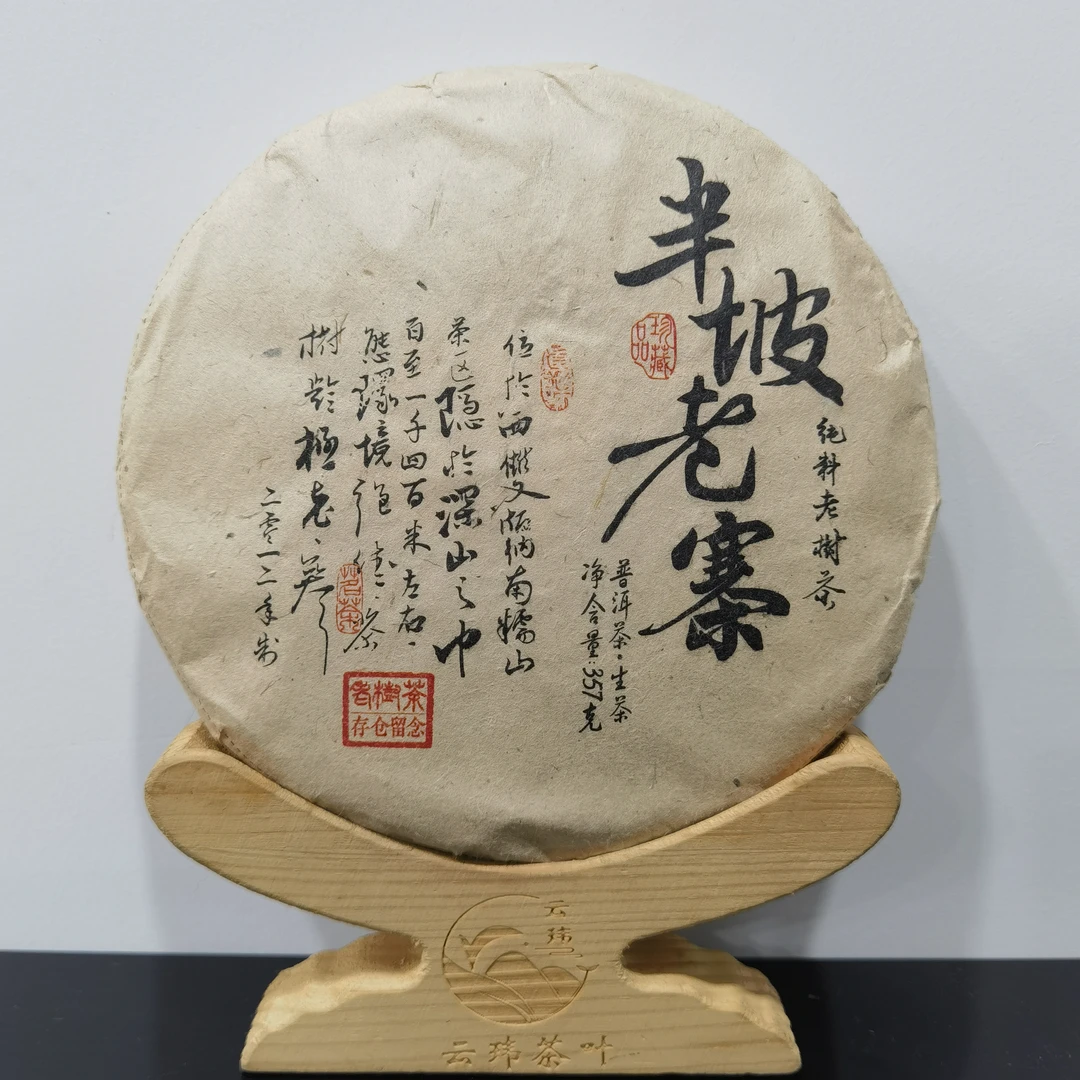 半坡老寨
珍藏
品
純料老樹茶
普洱茶·生茶
净含量:357克
位於西雙版纳南糯山
茶区隐於深山之中
百至一千四百米左右、
態環境
樹龄極老、
二零一二年制
茗茶
老樹茶
存仓留念
云瑋
云瑋茶叶